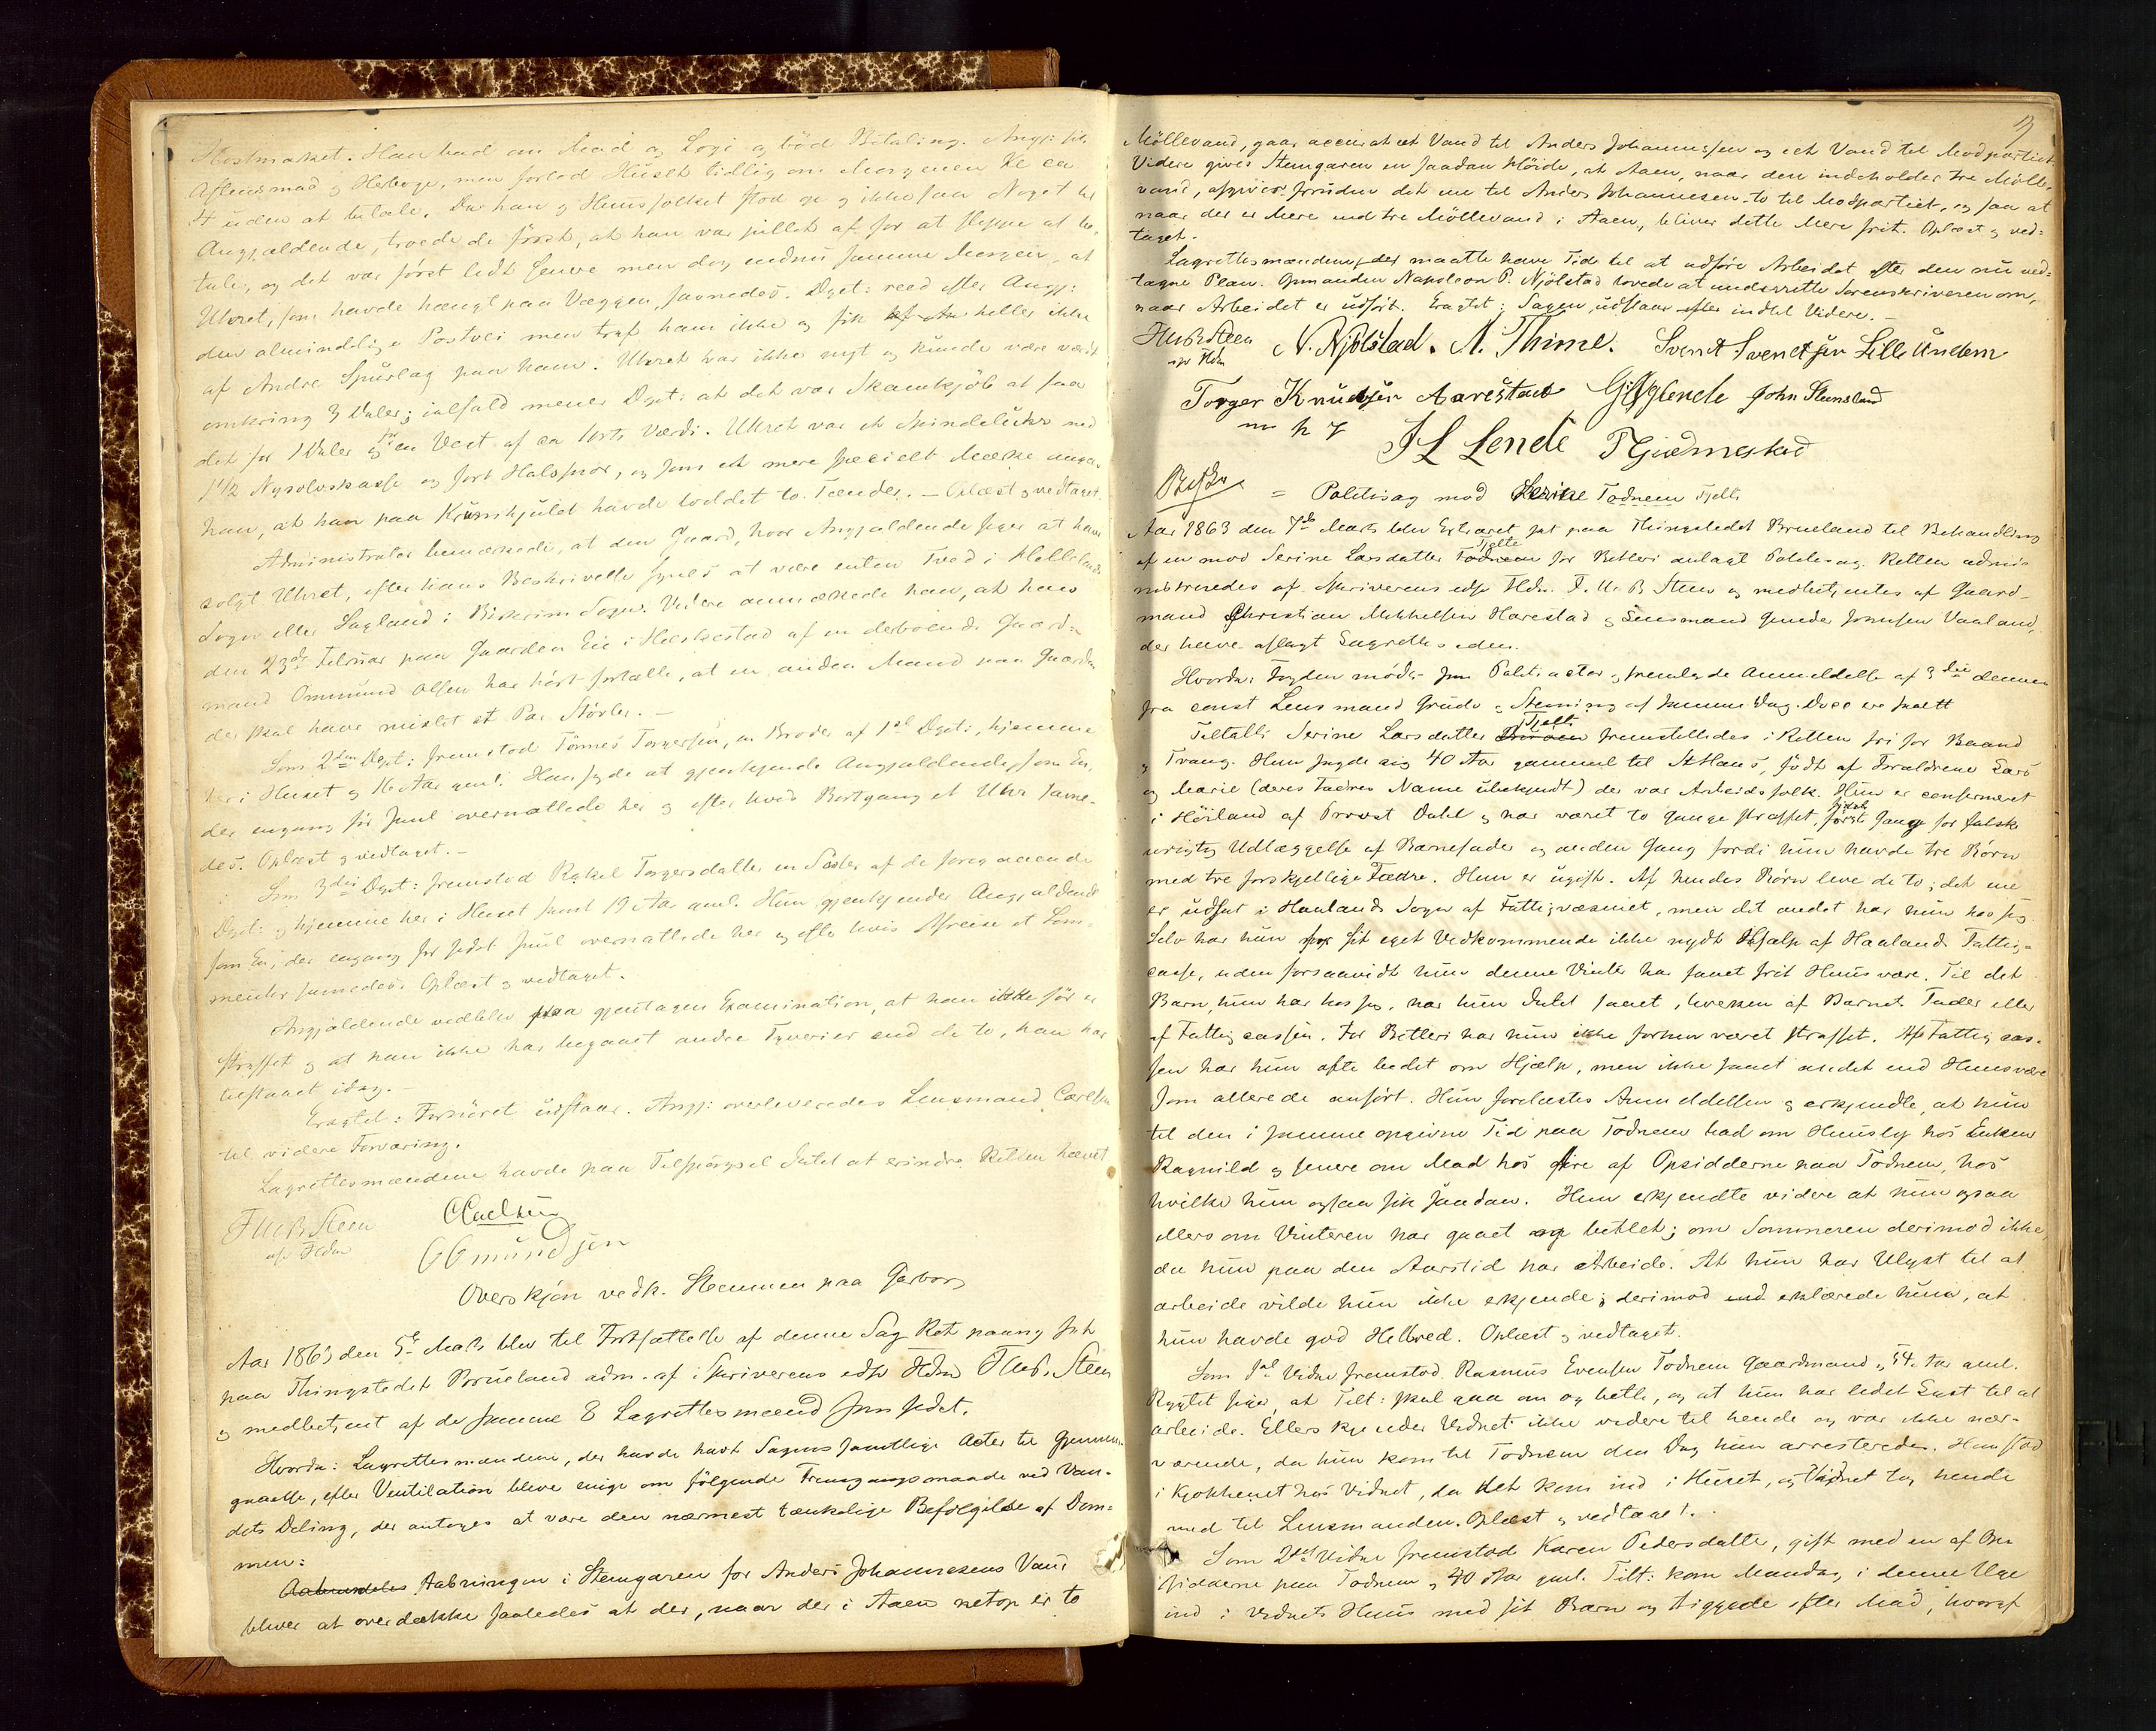 Høstmarket. Han bad om Mad og Logi og bød Betaling. Angj: fik
Aftensmad og Herberge, men forlod Huset tidlig om Morgenen Kl ca
4 uden at betale. Da han og Huusfolket stod op og ikke saa Noget til
Angjældende, troede de først, at han var pillet af for at sleppe at be-
tale, og det var først lidt senere men dog endnu samme Morgen, at
Uhret, som havde hængt paa Væggen, savnedes. Dpt: reed efter Angj:
den almindelige Postvei men traf ham ikke og fik heller ikke
af Andre Spurlag paa ham. Uhret var ikke nyt og kunde være værdt
omkring 3 Daler; ialfald mener Dpt: at det var Skamkjøb at faa
det for 1 Daler og en Vest af ca 1 ort Værdi. Uhret var et Spindeluhr med
1 1/2 Nysølvskasse og sort Halssnor, og som et mere specielt Mærke angav
han, at han paa Kronhjulet havde loddet to Tænder. — Oplæst og vedtaget.
Administrator bemærkede, at den Gaard, hvor Angjældende siger at have
solgt Uhret, efter hans Beskrivelse synes at være enten Tved i Hellelands
Sogn eller Sagland i Bjerkrim Sogn. Videre anmærkede han, at han
den 23de Februar paa Gaarden Eie i Heskestad af en derboende Gaard-
mand Ommund Olsen har hørt fortælle, at en anden Mand paa Gaarden
der skal have mistet et Par Støvler. —
Som 2den Dpt: fremstod Tønnes Torgersen, en Broder af 1ste Dpt:, hjemme
her i Huset og 16 Aar gml. Han sagde at gjenkjende Angjældende, som En,
der engang før Juul overnattede her og efter hvis Bortgang et Uhr savne-
des. Oplæst og vedtaget. —
Som 3die Dpt: fremstod Rakel Torgersdatter en Søster af de foregaaende
Dpt: og hjemme her i Huset samt 19 Aar gml. Hun gjenkjender Angjældende
som En, der engang før sidst Juul overnattede her og efter hvis Afreise et Lom-
meuhr savnedes. Oplæst og vedtaget.
Angjældende vedblev paa gjentagen Examination, at han ikke før er
straffet og at han ikke har begaaet andre Tyverier end de to, han har
tilstaaet idag. —
Eragtet: Forhøret udstaar. Angj: overleveredes Lensmand Carlsen
til videre Forvaring.
Lagrettesmændene havde paa Tilspørgsel Intet at erindre. Retten hævet
F M B Steen
efr Fdm
C Carlsen
O Omundsen
Overskjøn vedk. Stemmen paa Garborg
Aar 1863 den 5te Marts blev til Fortsættelse af denne Sag Ret paany sat
paa Thingstedet Brueland adm. af Skriverens edsv Fdm F M B. Steen
og medbetjent af de samme 8 Lagrettesmænd som sidst.
Hvorda: Lagrettesmændene, der havde havt Sagens samtlige Acter til Gjennem-
gaaelse, efter Ventilation bleve enige om følgende Fremgangsmaade ved Van-
dets Deling, der antages at være den nærmest tænkelige Befølgelse af Dom-
men:
Aabningen i Stemgaren for Anders Johannesens Vand
bliver at overdække saaledes at der, naar der i Aaen netop er to
Møllevand, gaar accurat et Vand til Anders Johannessen og eet Vand til Modpartiet
Videre gives Stemgaren en saadan Høide, at Aaen, naar den indeholder tre Mølle-
vand, afgiver foruden det ene til Anders Johannesen to til Modpartiet, og saa at
naar der er Mere end tre Møllevand i Aaen, bliver dette Mere frit. Oplæst og ved-
taget.
Lagrettesmændene, der maatte have Tid til at udføre Arbeidet efter den nu ved-
tagne Plan. Opmanden Napoleon P. Njølstad lovede at underrette Sorenskriveren om,
naar Arbeidet er udført. Eragtet: Sagen udstaar efter indtil Videre. —
F M B Steen
efr Fdm
N. Njølstad. A. Thime. Svend Svendsen Lille Undem
Torger Knudsen Aarestad G S Glende John Steensland
m p P
J L Lende T Gjedmestad
= Politisag mod Serine Todnem Tjelte
Aar 1863 den 7de Marts blev Extraret sat paa Thingstedet Brueland til Behandling
af en mod Serine Larsdatter Todnem Tjelte for Betleri anlagt Politisag. Retten admi-
nistreredes af Skriverens edsv Fdm. F. M. B Steen og medbetjentes af Gaard-
mand Christian Mikkelsen Harestad og Lensmand Gunder Jonnsen Vaaland,
der have aflagt Lagrettes eden.
Hvorda: Fogden møder som Politiactor og fremlagde Anmeldelse af 3die dennes
fra const Lensmand Grude og Stevning af samme Dag. Disse ere saalt
Tiltalte Serine Larsdatter Tjelte fremstilledes i Retten fri for Baand
og Tvang. Hun sagde sig 40 Aar gammel til St Hans, født af Forældrene Lars
og Marie (deres Fædres Navne ubekjendt) der var Arbeidsfolk. Hun er confirmeret
i Høiland af Provst Dahl og har været to Gange straffet, første Gang for falsk
urigtig Udlæggelse af Barnefader og anden Gang fordi hun havde tre Børn
med tre forskjellige Fædre. Hun er ugift. Af hendes Børn leve de to; det ene
er udsat i Haalands Sogn af Fattigvæsenet, men det andet har hun hos sig.
Selv har hun for sit eget Vedkommende ikke nydt Hjælp af Haalands Fattig-
casse, uden forsaavidt hun denne Vinter har faaet frit Huusvære. Til det
Barn, hun har hos sig, har hun Intet faaet, hverken af Barnets Fader eller
af Fattigcassen. For Betleri har hun ikke forhen været straffet. Af Fattigcas-
sen har hun ofte bedet om Hjælp, men ikke faaet andet end Huusvære
som allerede anført. Hun forelæstes Anmeldelsen og erkjendte, at hun
til den i samme opgivne Tid paa Todnem bad om Huusly hos Enken
Ragnild og senere om Mad hos fire af Opsidderne paa Todnem, hos
hvilke hun ogsaa fik saadan. Hun erkjendte videre at hun ogsaa
ellers om Vinteren har gaaet og betlet; om Sommeren derimod ikke,
da hun paa den Aarstid har Arbeide. At hun har Ulyst til at
arbeide vilde hun ikke erkjende; derimod erklærede hun, at
hun havde god Helbred. Oplæst og vedtaget.
Som 1ste Vidne fremstod Rasmus Evensen Todnem Gaardmand og 54 Aar gml.
Rygtet siger, at Tilt: skal gaa om og betle, og at hun har lidet Lyst til at
arbeide. Ellers kjender Vidnet ikke videre til hende og var ikke nær-
værende, da hun kom til Todnem den Dag hun arresteredes. Hun stod
i Kjøkkenet hos Vidnet, da det kom ind i Huset, og Vidnet tog hende
med til Lensmanden. Oplæst og vedtaget.
Som 2det Vidne fremstod Karen Pedersdatter, gift med en af Op-
sidderne paa Todnem og 40 Aar gml. Tilt: kom Mandag i denne Uge
ind i Vidnets Huus med sit Barn og tiggede efter Mad, hvoraf